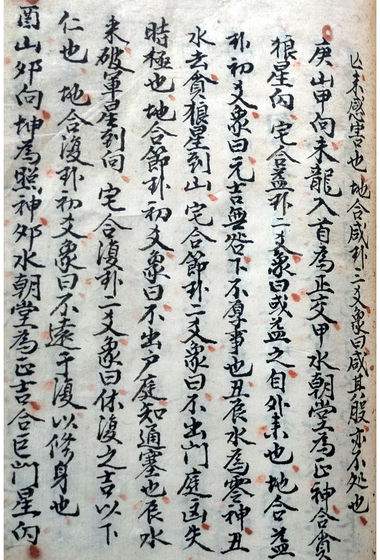 亦未感害也 地合咸卦二爻象曰咸其股亦不処也
庚山甲向未龍入首為正支甲水朝堂為正神合貪
狼星向 宅合益卦二爻象曰或益之自外来也地合益
卦初爻象曰元吉無咎下不厚事也丑辰水為零神丑
水去貪狼星到山 宅合節卦二爻象曰不出門庭凶失
時極也 地合節卦初爻象曰不出户庭知通塞也辰水
来破軍星到向 宅合復卦二爻象曰休復之吉以下
仁也 地合復卦初爻象曰不遠于復以修身也
酉山卯向坤為照神卯水朝堂為正吉合巨門星向